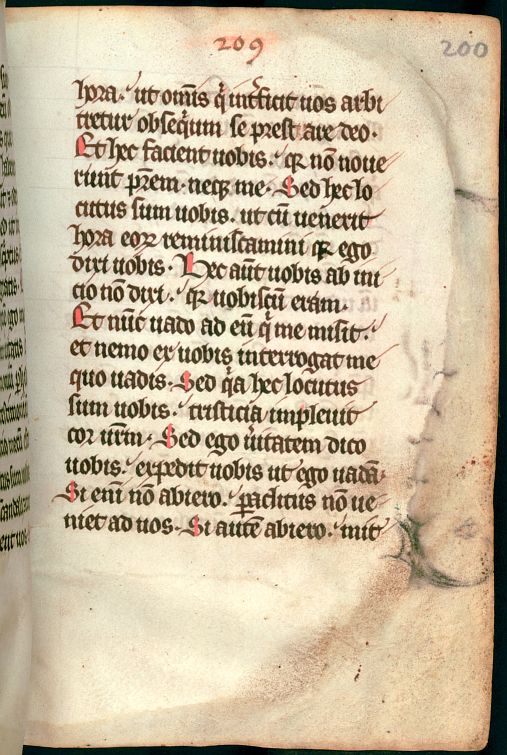 209
200
hora. ut om̅is q̇ int̅ficit uos arbi
tretur obsequium se prestare deo.
Et hec facient uobis. qꝛ nō noue
runt pr̅em. neqꝫ me. Sed hec lo
cutus sum uobis. ut cū uenerit
hora eoꝝ reminiscamini qꝛ ego
dixi uobis. Hec aut̅ uobis ab ini
cio nō dixi. qꝛ uobiscū eram.
Et nūc uado ad eū q̇ me misit.
et nemo ex uobis interrogat me
quo uadis. Sed qͥa hec locutus
sum uobis. tristicia impleuit
cor ur̅m. Sed ego ūitatem dico
uobis. expedit uobis ut ego uadā.
Si enī nō abiero. ꝑaclitus nō ue
niet ad uos. Si autē abiero. mit